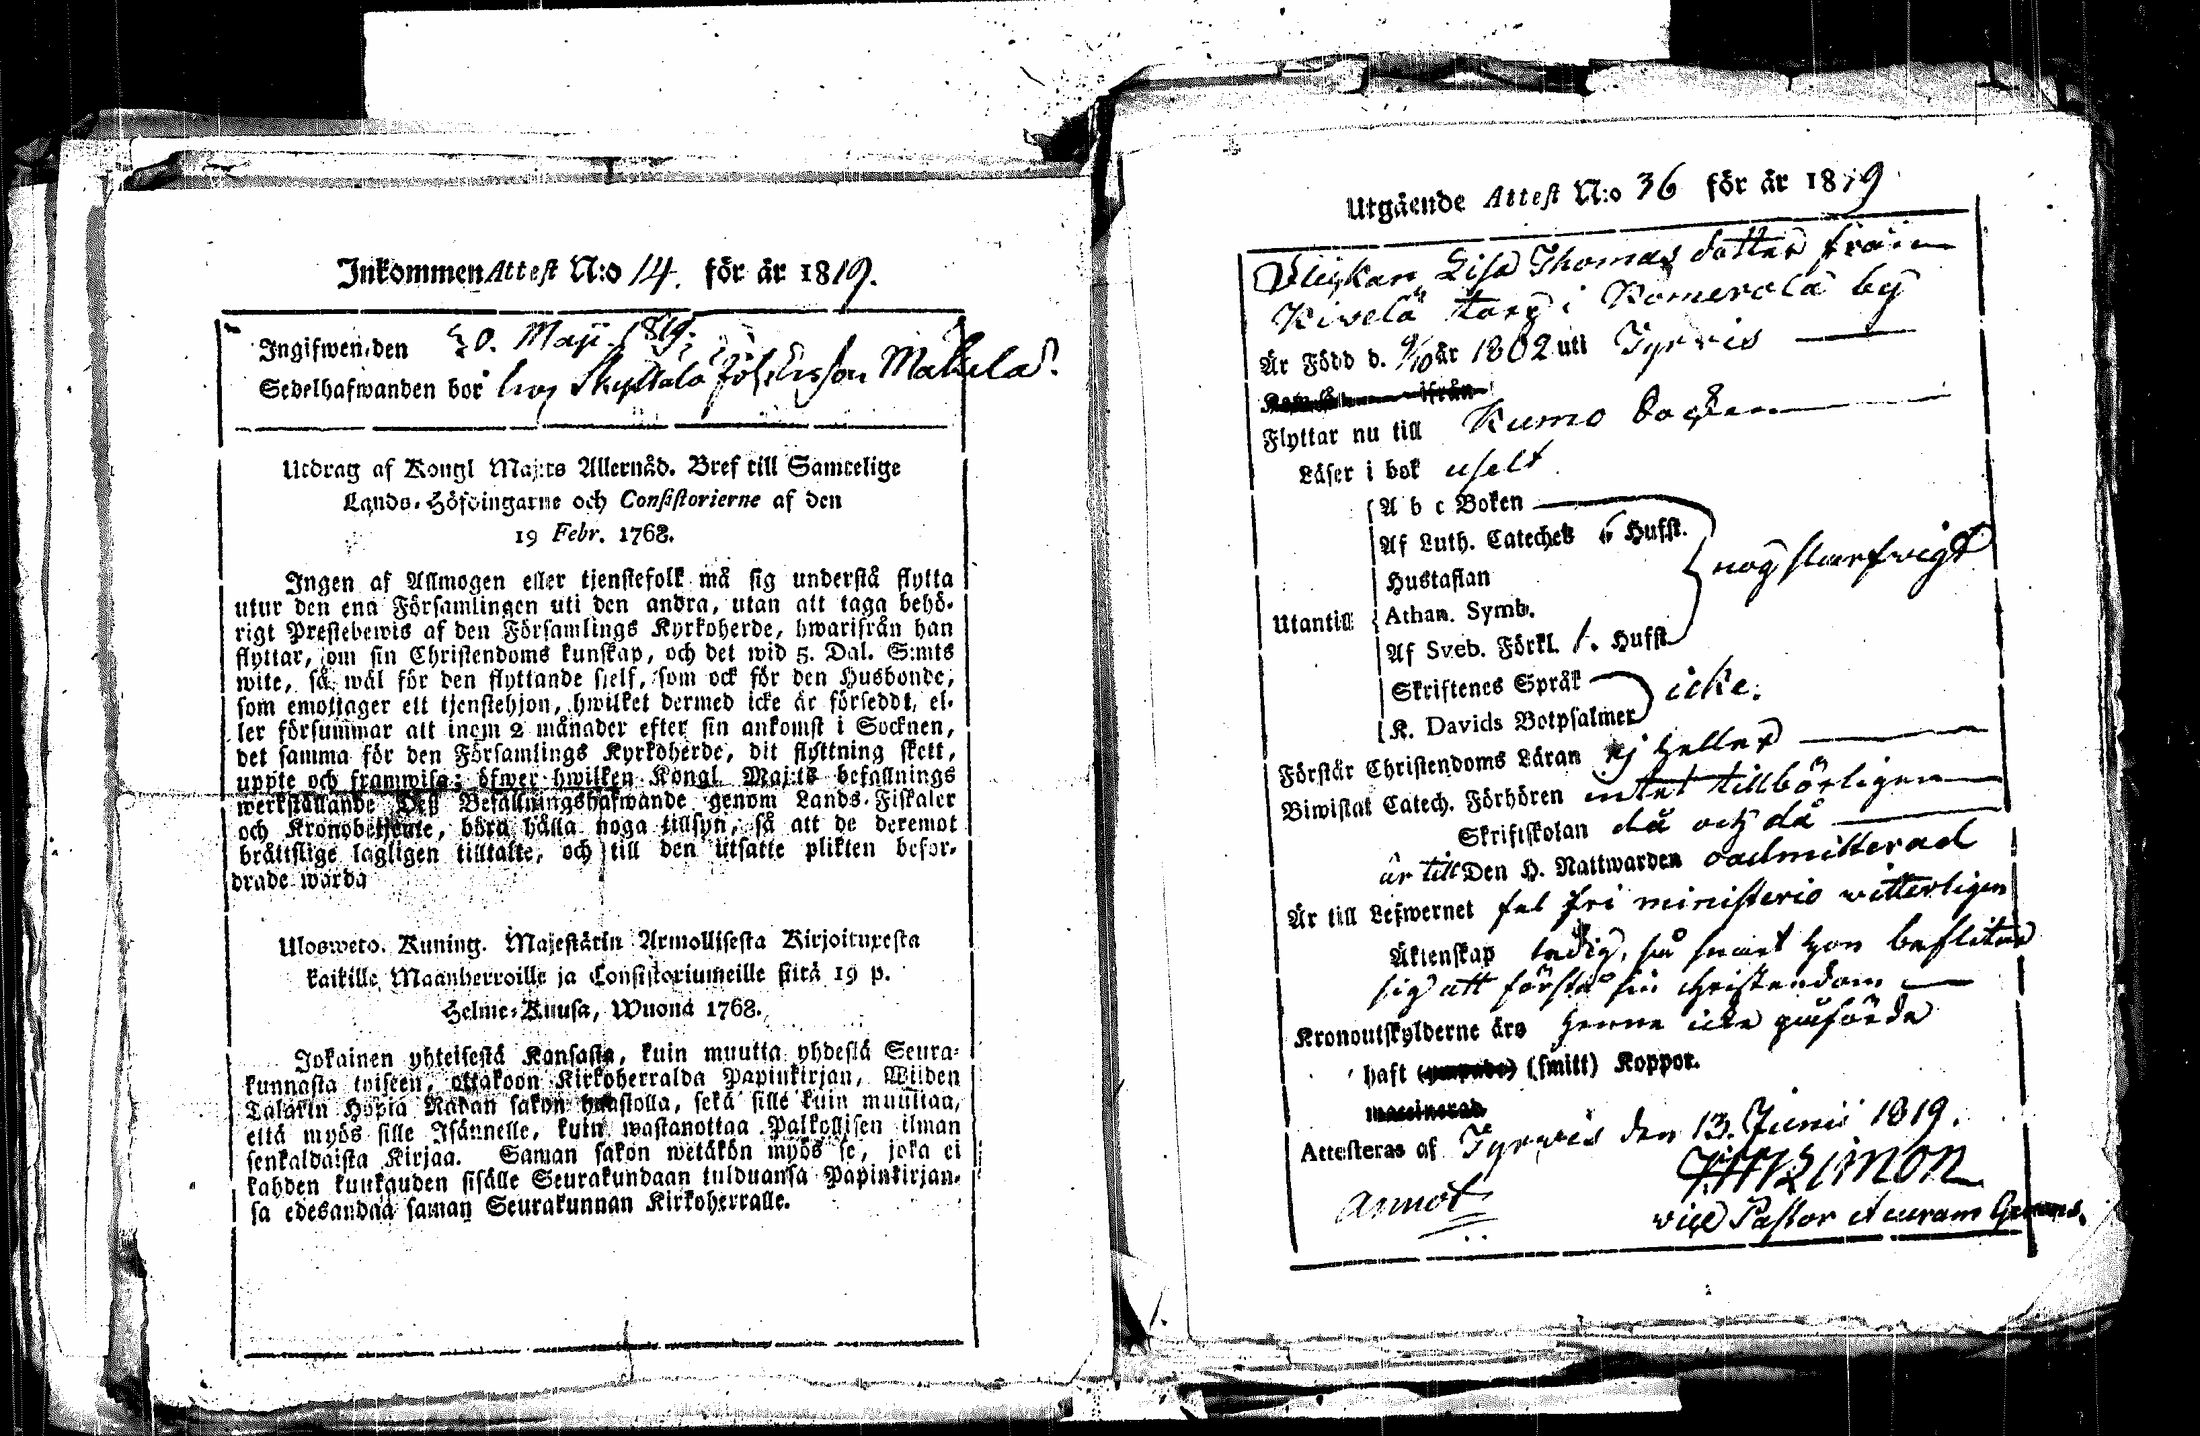 Inkommen Attest N:o 14. för år 1819.
Ingifwen den 30. Maji 1819.
Sedelhafwanden bor hos Skyttalа
Utdrag af Kongl Maj:ts Allernåd. Bref till Samtelige
Lands-Höfdingarne och Consistorierne af den
19 Febr. 1768.
Ingen af Allmogen eller tjenstefolk må sig understå flytta
utur den ena Församlingen uti den andra, utan att taga behö-
rigt Prestebewis af den Församlings Kyrkoherde, hwarifrån han
flyttar, om sin Christendoms kunskap, och det wid 5. Dal. S:mts
wite, så wäl för den flyttande sjelf, som ock för den Husbonde,
som emottager ett tjenstehjon, hwilket dermed icke är försedt, el-
ler försummar att inom 2 månader efter sin ankomst i Socknen,
det samma för den Församlings Kyrkoherde, dit flyttning skett,
uppte och framwisa; öfwer hwilken Kongl. Maj:ts befallnings
werkställande Deß Befallningshafwande genom Lands-Fiskaler
och Kronobetjente, böra hålla noga tillsyn, så att de deremot
bråttslige lagligen tilltalte, och till den utsatte plikten befor-
drade warda
Ulosweto. Kuning. Majestätin Armollisesta Kirjoituxesta
kaikille Maanherroille ja Consistoriumeille siitä 19 p.
Helme-Kuusa, Wuona 1768.
Jokainen yhteisestä Kansasta, kuin muutta yhdestä Seura-
kunnasta toiseen, ottakoon Kirkoherralda Papinkirjan, Wiiden
Talarin Hopia Rahan sakon haastolla, sekä sille kuin muuttaa,
että myös sille Isännelle, kuin wastanottaa Palkollisen ilman
senkaldaista Kirjaa. Saman sakon wetäkön myös se, joka ei
kahden kuukauden sisälle Seurakundaan tulduansa Papinkirjan-
sa edesandaa saman Seurakunnan Kirkoherralle.
Utgående Attest N:o 36 för år 1819
Pigkan Lisa Thomas dotter från
Kivelä torp i Komerola by
Är Född d. 9/10 år 1802 uti Tyrvis
ifrån
Flyttar nu till Kumo Socken
Läser i bok uselt
A b c Boken
Af Luth. Cateches 6 Hufst.
Hustaflan
nog slarfvigt
Utantill Athan. Symb.
Af Sveb. Förkl. 1. Hufst
Skriftenes Språk
icke.
K. Davids Botpsalmer
Förstår Christendoms Läran ej heller
Biwistat Catech. Förhören intet tillbörligen
Skriftskolan då och då
är till Den H. Nattwarden oadmitterad
Är till Lefwernet fri ministerio vitterligen
Äktenskap ledig, så snart hon beflitar
sig att förstå sin christendom
Kronoutskylderne äro henne icke påförde
haft (smitt) Koppor.
Attesteras af Tyrvis den 13. Junii 1819.
vice Pastor
Annot